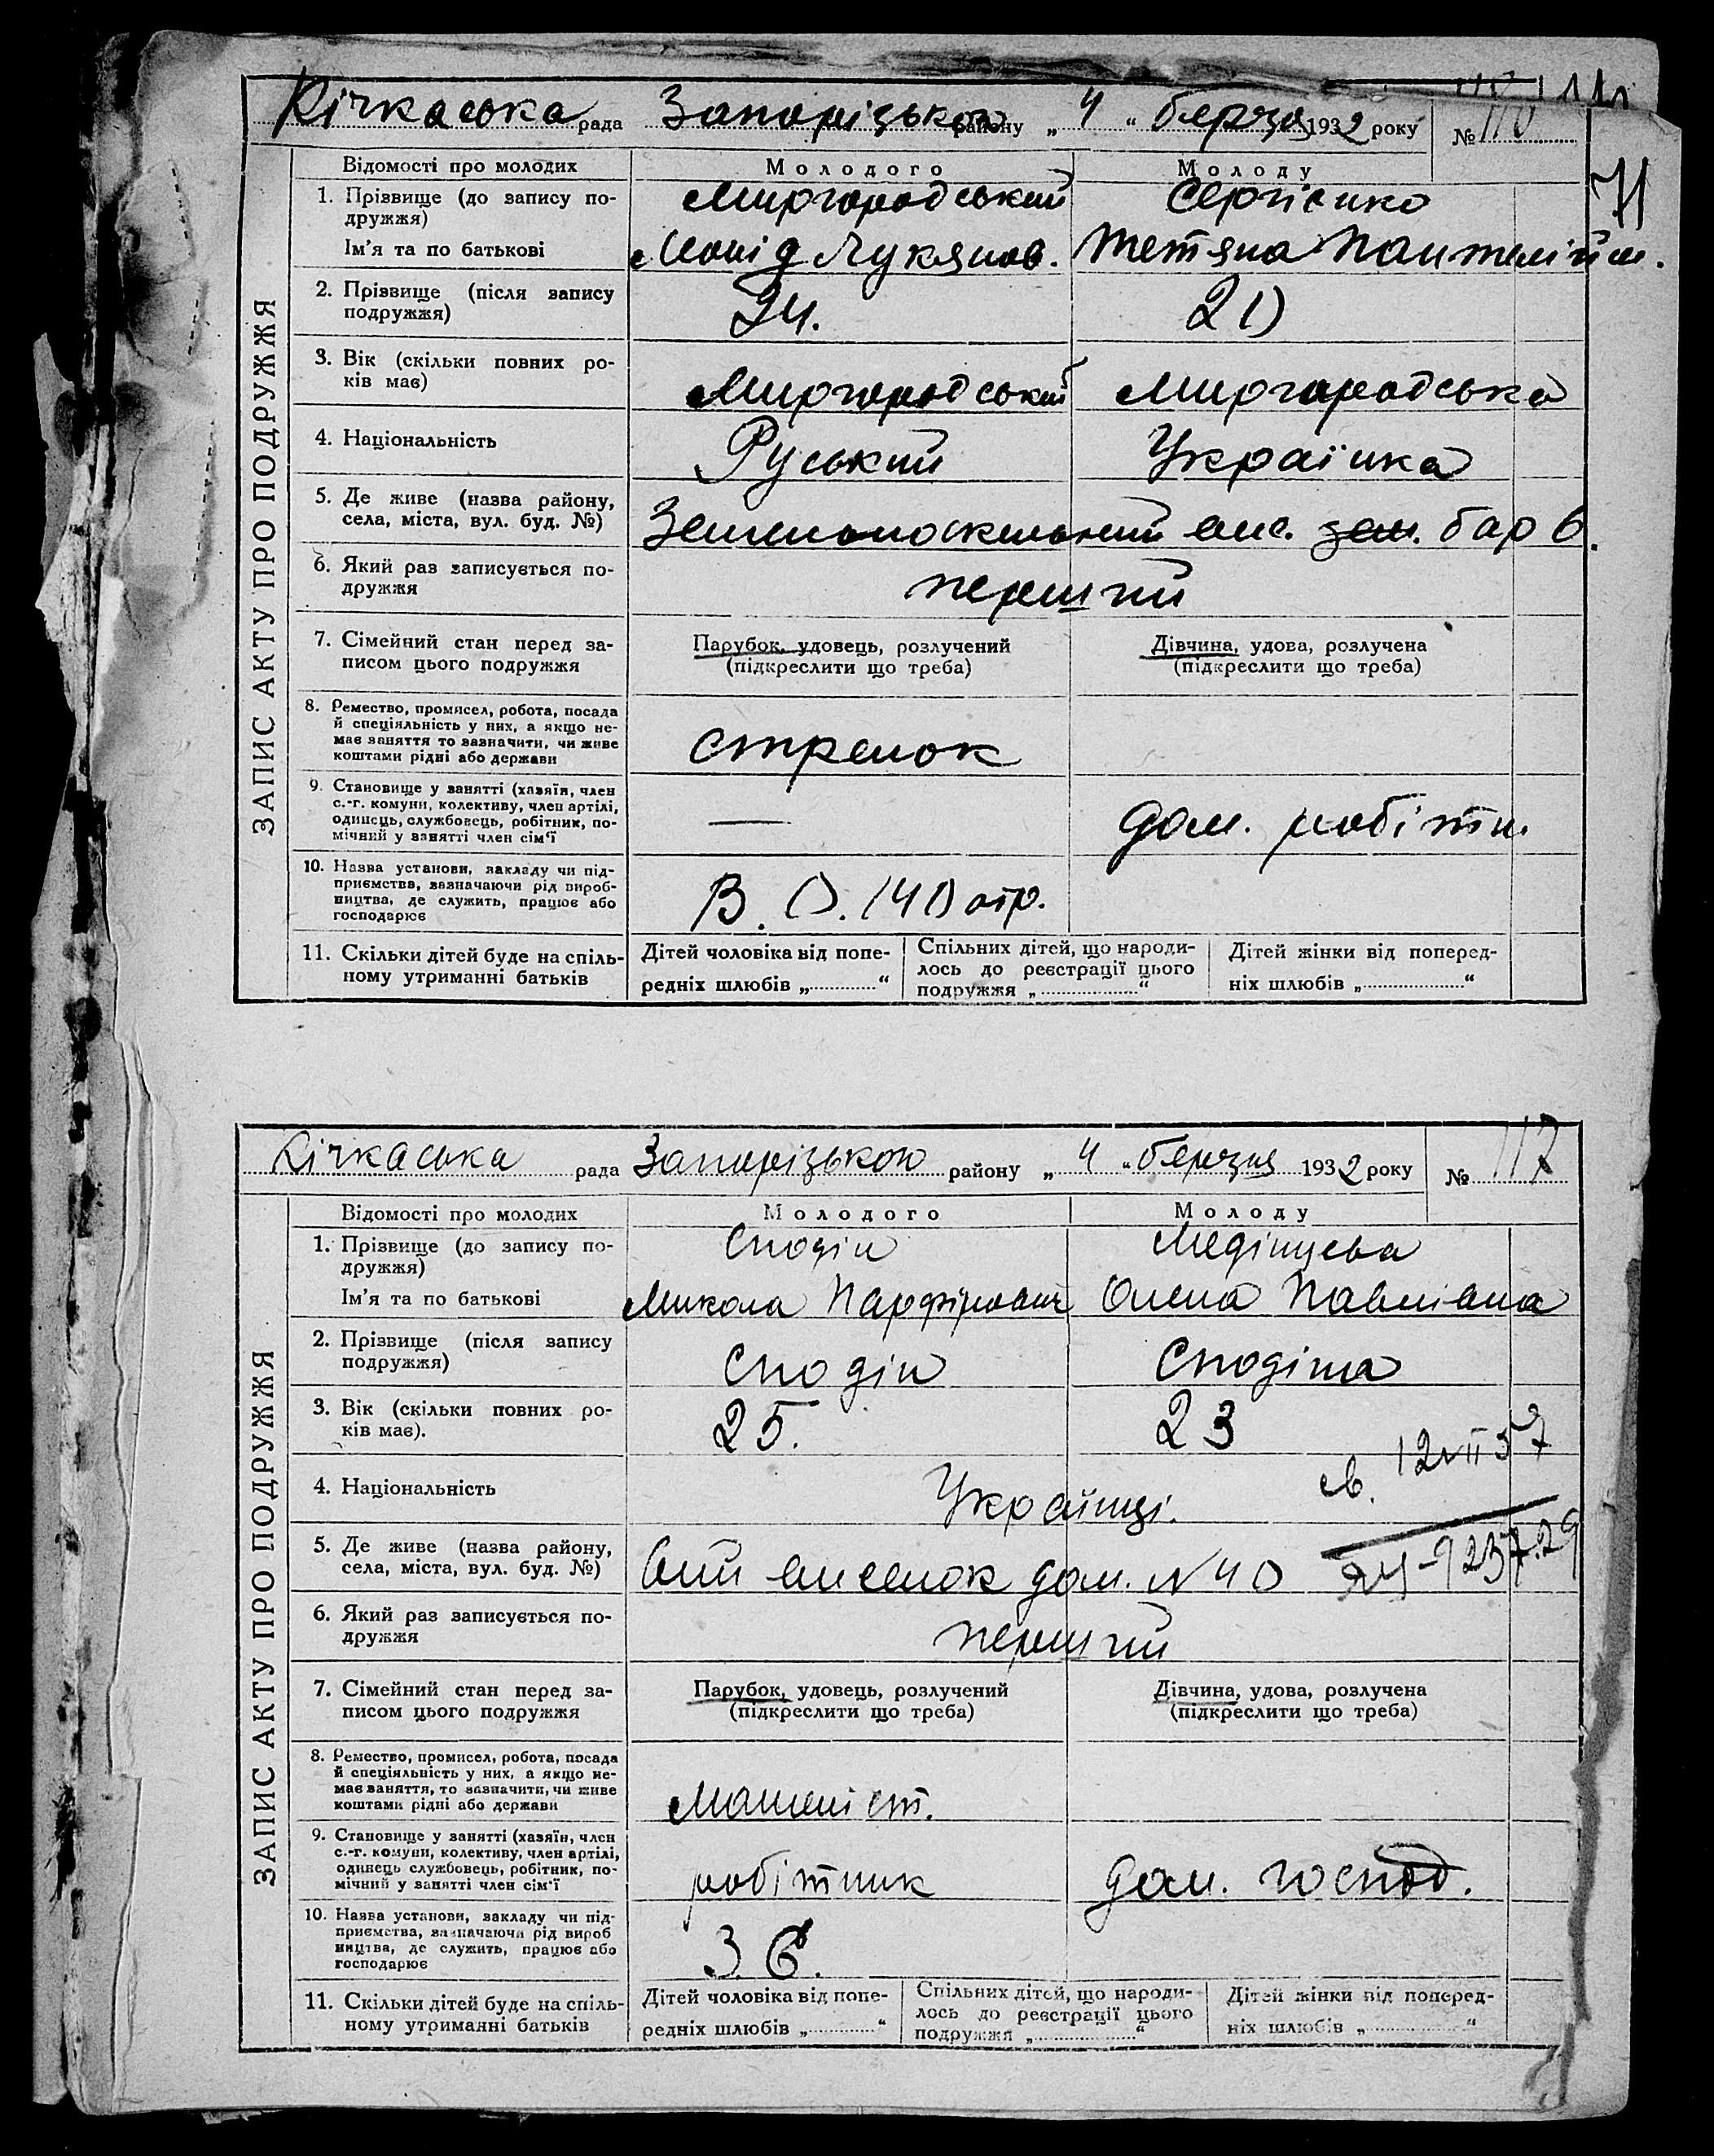 Кічкаська рада Запорізького району „ 4 “ березня 1932 року № 116
71
ЗАПИС АКТУ ПРО ПОДРУЖЖЯ
Відомості про молодих Молодого Молоду
1. Прізвище (до запису по- Миргородський Сергієнко
дружжя)
Ім'я та по батькові Леонід Лукянов. Тетяна Пантелійм.
2. Прізвище (після запису 24. 21
подружжя)
3. Вік (скільки повних ро- Миргородський Миргородська
ків має)
4. Національність Руський Українка
5. Де живе (назва району,
села, міста, вул. буд. №) вис. бар 6.
6. Який раз записується по- перший
дружжя
7. Сімейний стан перед за- Парубок, удовець, розлучений Дівчина, удова, розлучена
писом цього подружжя (підкреслити що треба) (підкреслити що треба)
8. Ремество, промисел, робота, посада
й спеціяльність у них, а якщо не-
має заняття то зазначити, чи живе стрелок
коштами рідні або держави
9. Становище у занятті (хазяїн, член
с.-г. комуни, колективу, член артілі, —
одинець, службовець, робітник, по- дом. робітн.
мічний у занятті член сім'ї
10. Назва установи, закладу чи під-
приємства, зазначаючи рід вироб-
ництва, де служить, працює або В. О. отр.
господарює
11. Скільки дітей буде на спіль- Дітей чоловіка від попе- Спільних дітей, що народи- Дітей жінки від поперед-
ному утриманні батьків редніх шлюбів „ “ лось до реєстрації цього ніх шлюбів „ “
подружжя „ “
Кічкаська рада Запорізького району „ 4 “ березня 1932 року № 117
ЗАПИС АКТУ ПРО ПОДРУЖЖЯ
Відомості про молодих Молодого Молоду
1. Прізвище (до запису по- Сподін Медінцева
дружжя)
Ім'я та по батькові Микола Парфірович Олена Павлівна
2. Прізвище (після запису Сподін Сподіна
подружжя)
3. Вік (скільки повних ро- 25. 23
ків має).
4. Національність Українці.
5. Де живе (назва району,
села, міста, вул. буд. №) виселок дом. № 40
6. Який раз записується по- перший
дружжя
7. Сімейний стан перед за- Парубок, удовець, розлучений Дівчина, удова, розлучена
писом цього подружжя (підкреслити що треба) (підкреслити що треба)
8. Ремество, промисел, робота, посада
й спеціяльність у них, а якщо не-
має заняття, то зазначити, чи живе машеніст.
коштами рідні або держави
9. Становище у занятті (хазяїн, член
с.-г. комуни, колективу, член артілі,
одинець службовець, робітник, по- робітник дом. господ.
мічний у занятті член сім'ї
10. Назва установи, закладу чи під-
приємства, зазначаючи рід вироб
ництва, де служить, працює або
господарює
11. Скільки дітей буде на спіль- Дітей чоловіка від попе- Спільних дітей, що народи- Дітей жінки від поперед-
ному утриманні батьків редніх шлюбів „ “ лось до реєстрації цього ніх шлюбів „ “
подружжя „ “